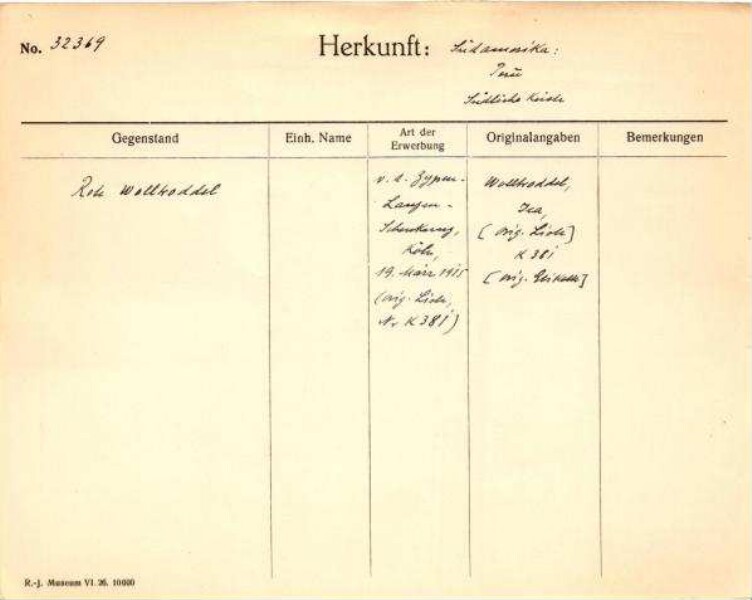 No. 32369
Herkunft: Südamerika:
Peru
Südliche Küste
Gegenstand
Einh. Name
Art der
Erwerbung
Originalangaben
Bemerkungen
Rote Wolltroddel
v. d. Zypen-
Langen-
Schenkung,
Köln,
19. März 1915
(orig. Liste,
Nr K 381)
Wolltroddel,
Ica,
[orig. Liste]
K 381
[orig. Etikette]
R.-J. Museum VI. 26. 10000